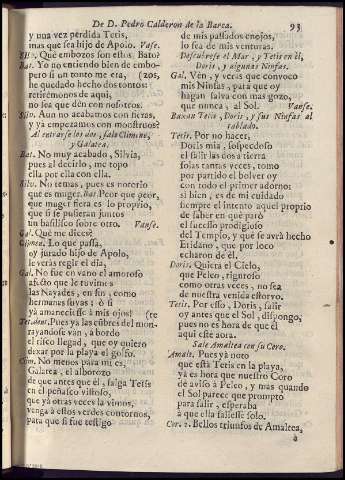 De D. Pedro Calderon de la Barca. 93
y una vez pérdida Tetis,
mas que sea hijo de Apolo. Vase.
Silv. Què embozos son estos Bato?
Bat. Yo no entiendo bien de embozos,
pero si un tonto me era,
he quedado hecho dos tontos:
retirémonos de aqui,
no sea que dèn con nosotros.
Silv. Aun no acabamos con fieras,
y yà empezamos con monstruos?
Al entrarse los dos, sale Climene,
y Galatea.
Bat. No muy acabado, Silvia,
pues al decirlo, me topo
ella por ella con ella.
Silv. No temas, pues es notorio
que es muger. Bat. Peor que peor,
que muger fiera es lo proprio,
que si se pusieran juntos
un basilisco sobre otro. Vanse.
Gal. Què me dices?
Climen. Lo que passa,
oy jurado hijo de Apolo,
le veràs regir el dia,
Gal. No fue en vano el amoroso
afecto que le tuvimos
las Nayades, en fin, como
hermanas suyas: ò si
yà amaneciesse à mis ojos!
Tet. dent. Pues yà las cumbres del montrayandose
vàn, à bordo
el risco llegad, que oy quiero
dexar por la playa el golfo.
Clim. No menos para mì es,
Galatea, el alborozo
de que antes que èl, salga Tetis
en el peñasco vistoso,
que yà otras veces la vimos,
venga à estos verdes contornos,
para que si fue testigo
de mis passados enojos,
lo sea de mis venturas.
Descubrese el Mar, y Tetis en èl,
Doris, y algunas Ninfas.
Gal. Vèn, y veràs que convoco
mis Ninfas, para que oy
hagan salva con mas gozo,
que nunca, al Sol. Vanse.
Baxan Tetis, Doris, y sus Ninfas al
tablado.
Tetis. Por no hacer,
Doris mia, sospechoso
el salir las dos à tierra
solas tantas veces, tomo
por partido el bolver oy
con todo el primer adorno:
si bien, es de mi cuidado
siempre el intento aquel proprio
de saber en què parò
el sucesso prodigioso
del Templo, y què se avrà hecho
Eridano, que por loco
echaron de èl.
Doris. Quiera el Cielo,
que Peleo, riguroso
como otras veces, no sea
de nuestra venida estorvo.
Tetis. Por esso, Doris, salir
oy antes que el Sol, dispongo,
pues no es hora de que èl
aqui estè aora.
Sale Amaltea con su Coro.
Amalt. Pues yà noto
que està Tetis en la playa,
yà es hora que nuestro Coro
dè aviso à Peleo, y mas quando
el Sol parece que prompto
para salir, esperaba
à que ella saliesse solo.
Cor. 2. Bellos triunfos de Amaltea,
à